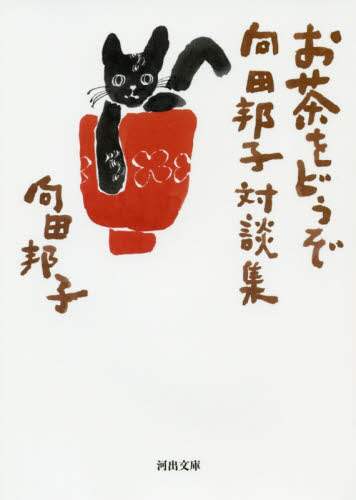 お茶をどうぞ
向田邦子対談集
向田邦子
河出文庫